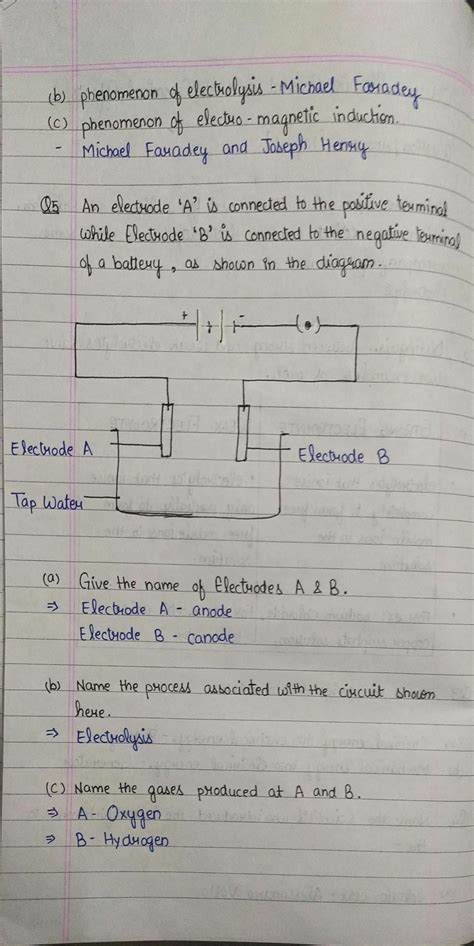 (b) phenomenon of electrolysis - Michael Faradey
(c) phenomenon of electro-magnetic induction.
- Michael Faradey and Joseph Henry
Q5 An electrode 'A' is connected to the positive terminal
while Electrode 'B' is connected to the negative terminal
of a battery, as shown in the diagram.
+ -
Electrode A
Electrode B
Tap Water
(a) Give the name of Electrodes A & B.
⇒ Electrode A - anode
Electrode B - canode
(b) Name the process associated with the circuit shown
here.
⇒ Electrolysis
(c) Name the gases produced at A and B.
⇒ A - Oxygen
⇒ B - Hydrogen